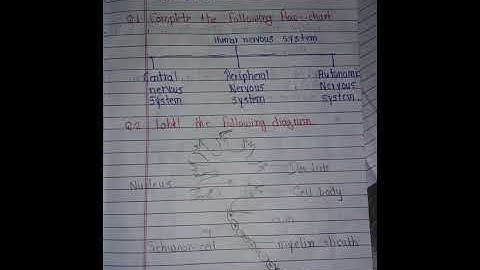 Q.1 Complete the following flow chart
Human nervous system
Central Peripheral Autonomic
nervous Nervous Nervous
system system system
Q.2 Label the following diagram
Dendrite
Nucleus
Cell body
Schwann cell myelin sheath